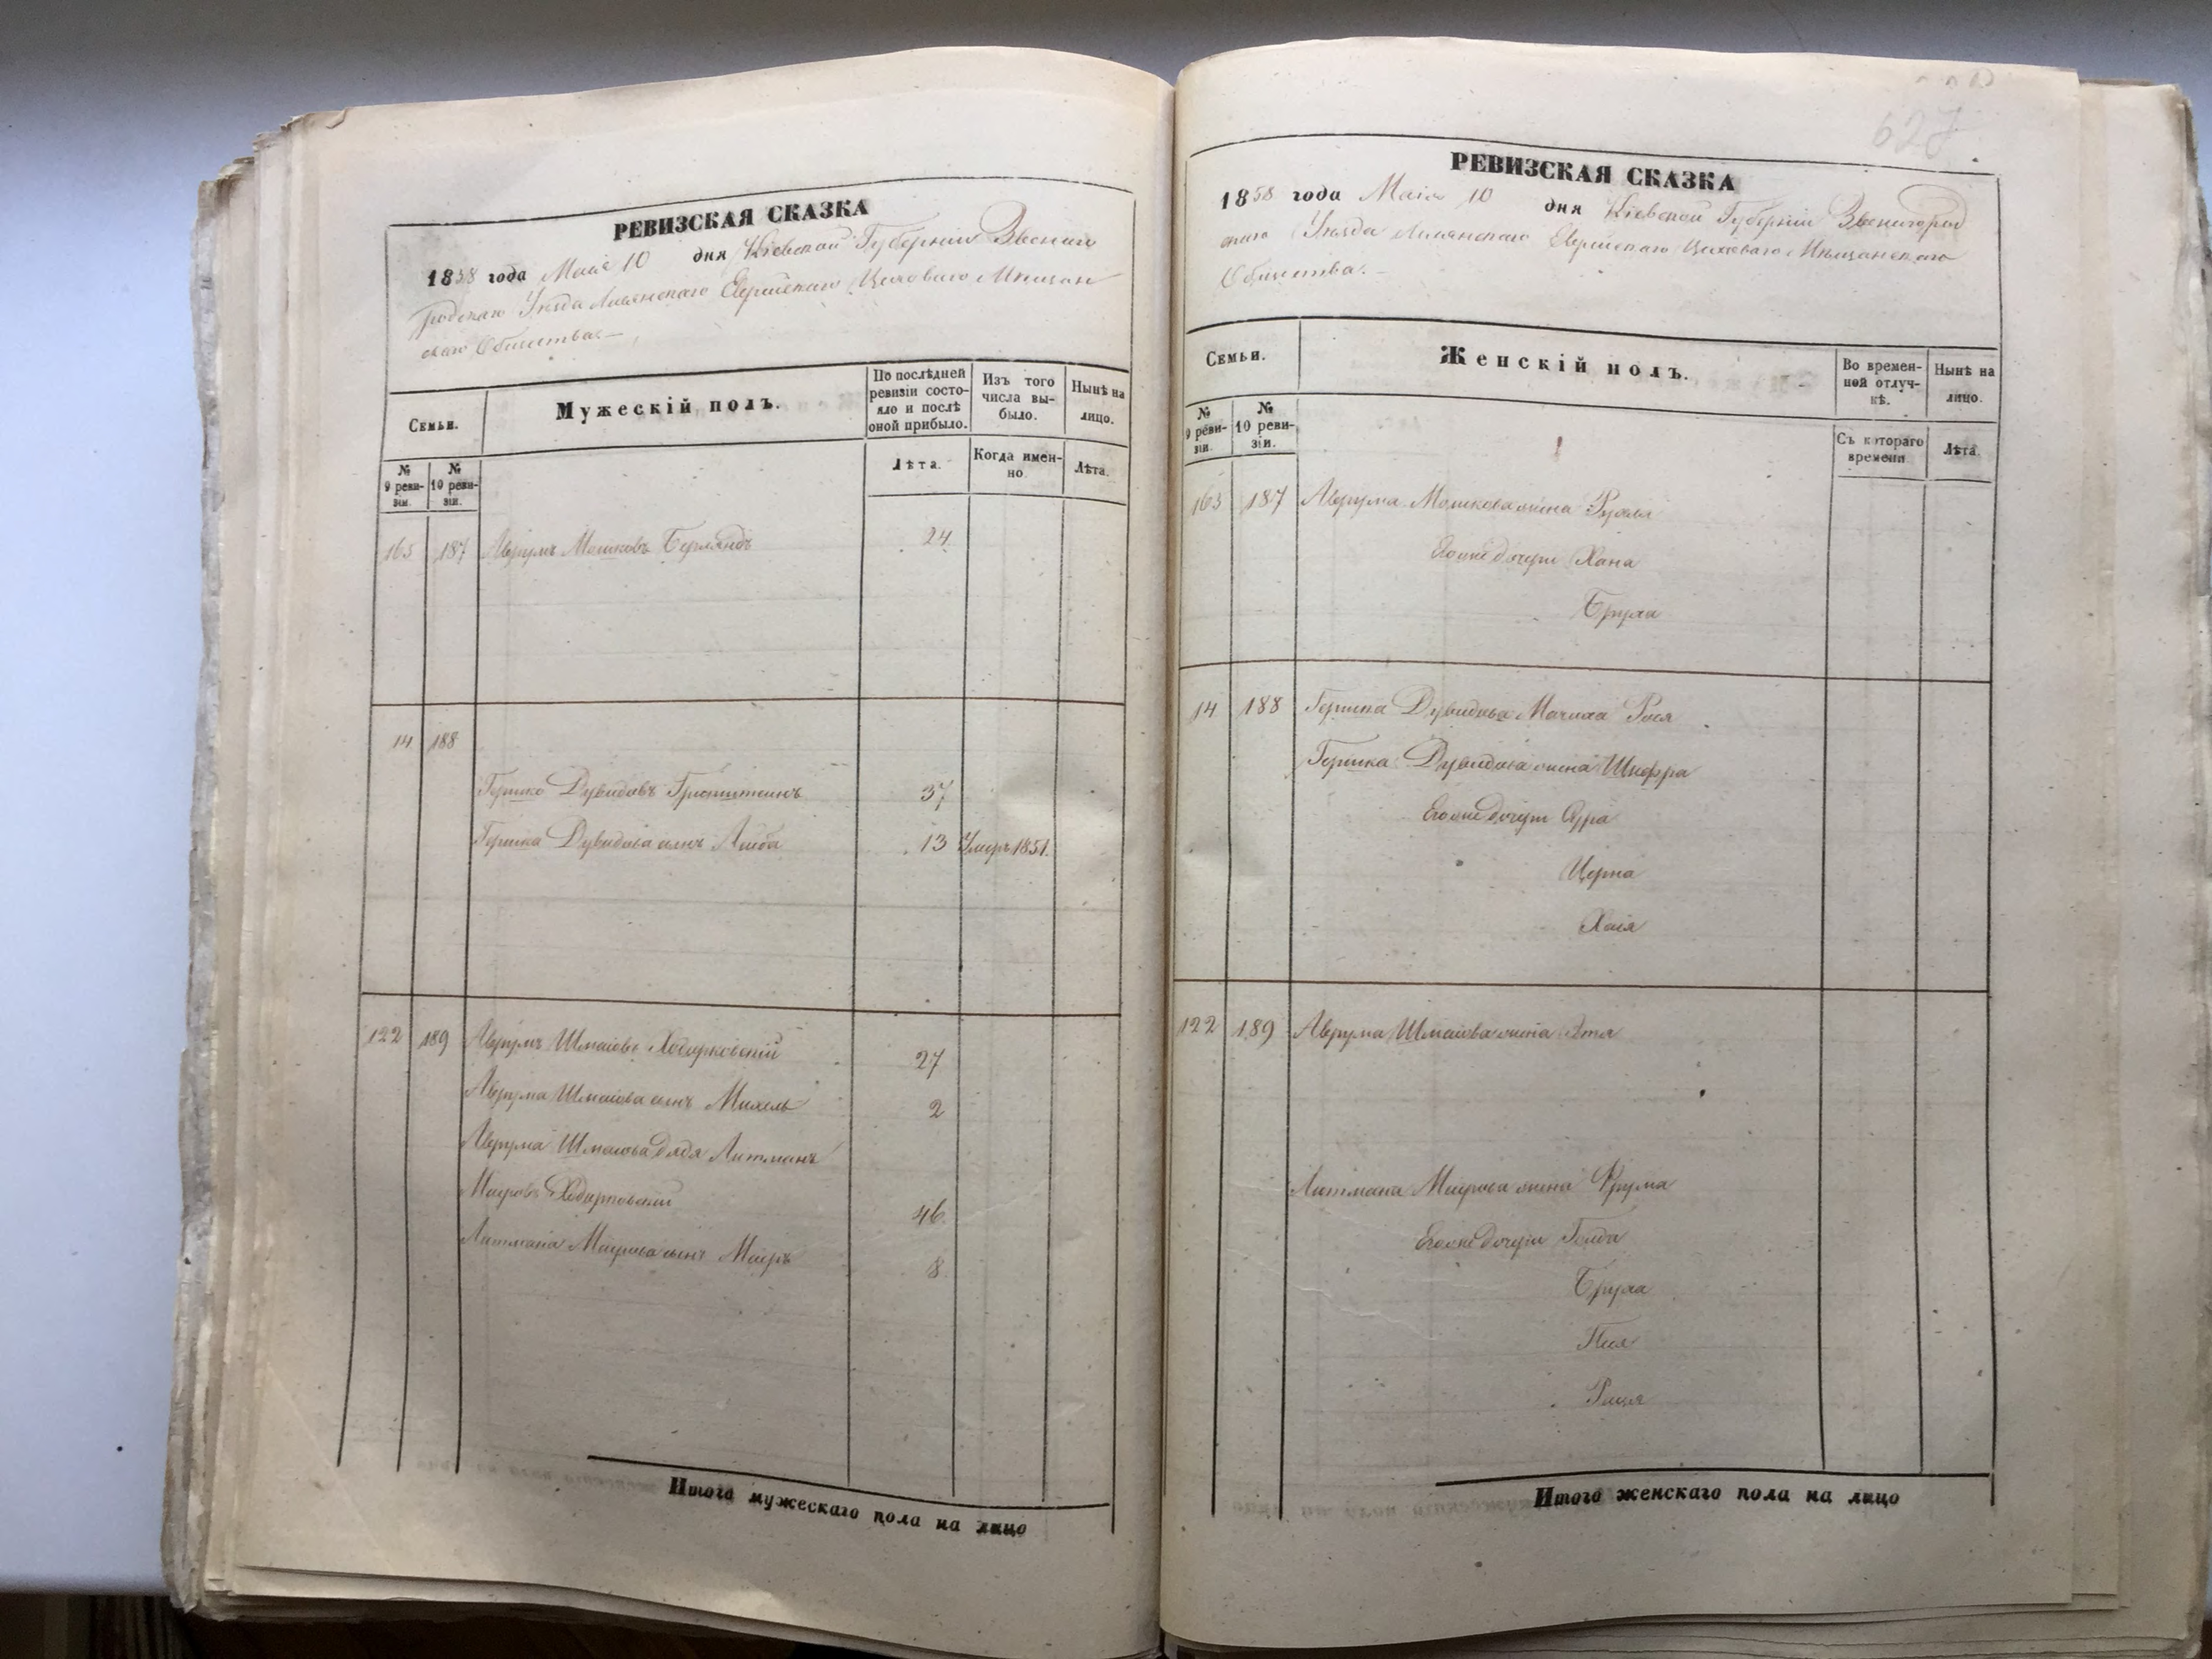 РЕВИЗСКАЯ СКАЗКА
1858 года Маія 10 дня Кіевской Губерніи Звениго
родскаго Уѣзда Лисянскаго Еврейскаго Цеховаго Мѣщан
скаго Общества.—
Семьи.
Мужескій полъ.
По послѣдней ревизіи состояло и послѣ оной прибыло.
Изъ того числа выбыло.
Нынѣ на лицо.
№ 9 ревизіи.
№ 10 ревизіи.
Лѣта.
Когда именно
Лѣта.
165 187 Аврумъ Мошковъ Берляндъ 24
14 188
Гершко Дувидовъ 37
Гершка Дувидова сынъ Лейба 13 Умеръ 1851.
122 189 Аврумъ Шмаіовъ Ходорковскій 27
Аврума Шмаіова сынъ Михель 2
Аврума Шмаіова дядя Литманъ
Маіоровъ Ходорковскій 46
Литмана Маіорова сынъ Маіоръ 8
Итого мужескаго пола на лицо
627
РЕВИЗСКАЯ СКАЗКА
1858 года Маія 10 дня Кіевской Губерніи Звенигород
скаго Уѣзда Лисянскаго Еврейскаго Цеховаго Мѣщанскаго
Общества.—
Семьи.
Женскій полъ.
Во временной отлучкѣ.
Нынѣ на лицо.
№ 9 ревизіи.
№ 10 ревизіи.
Съ котораго времени
Лѣта.
165 187 Аврума Мошкова жена Рухля
Егоже дочери Хана
Бруха
14 188 Гершка Дувидова Мачиха Рося
Гершка Дувидова жена Шифра
Егоже дочери Сура
Церна
Хаія
122 189 Аврума Шмаіова жена Этя
Литмана Маіорова жена Фрума
Егоже дочери Голда
Бруха
Песя
Итого женскаго пола на лицо